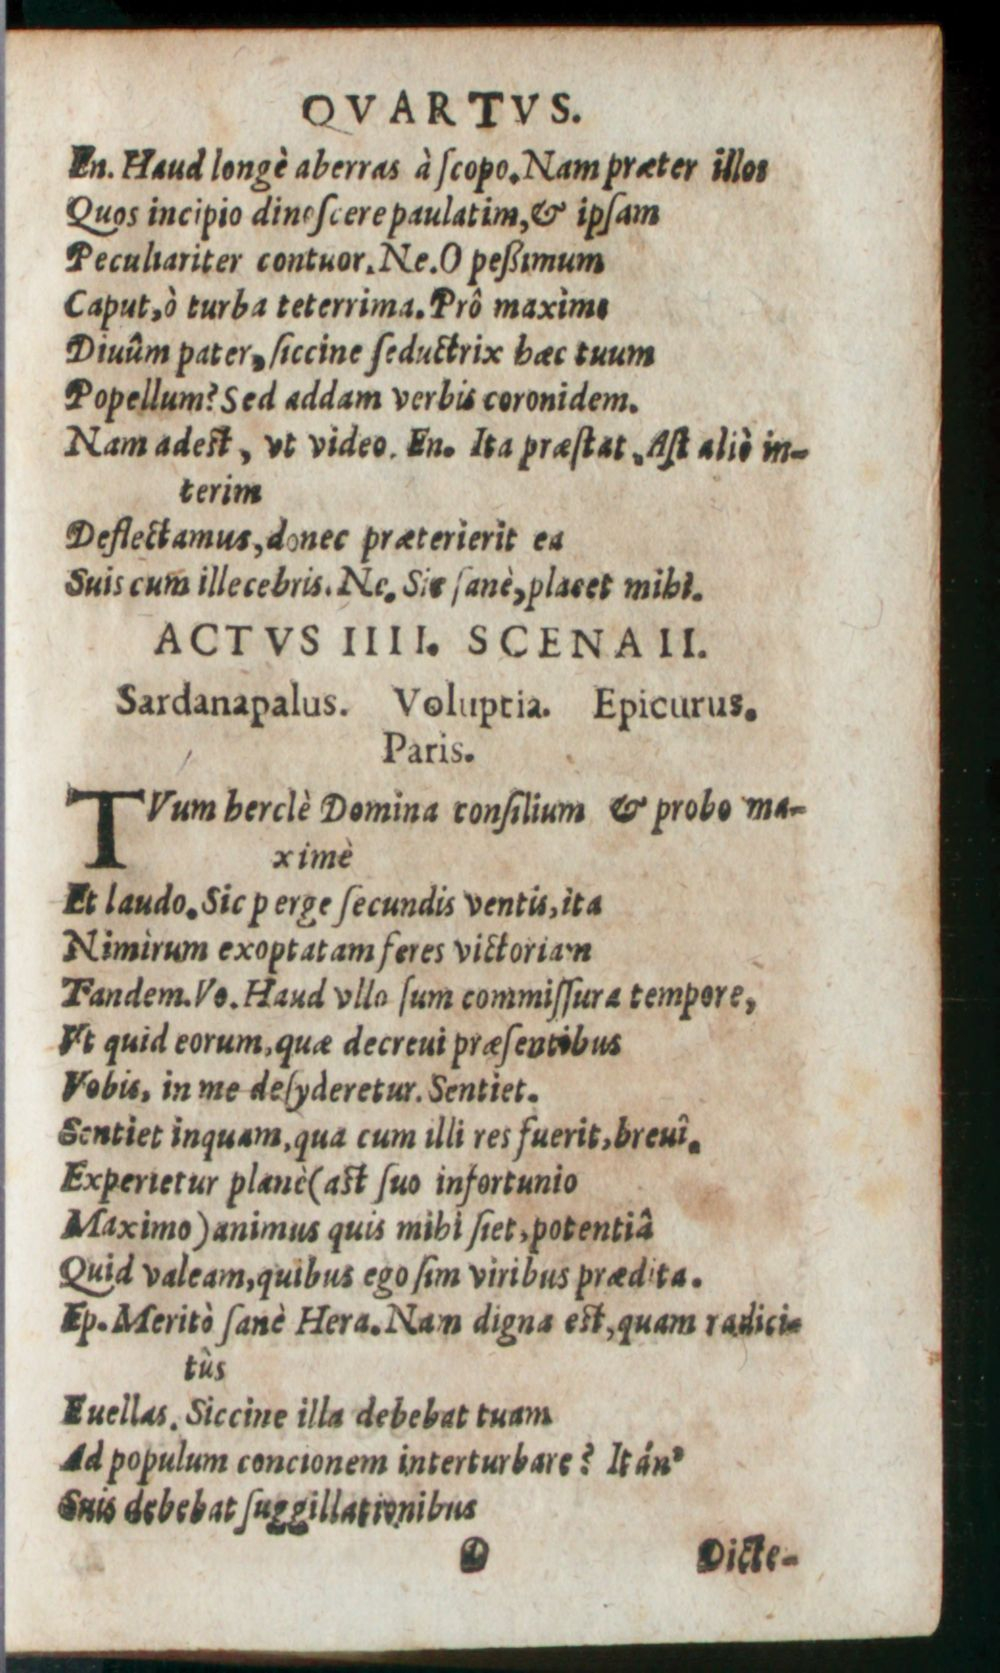 QVARTVS.
En. Haud longè aberras à ſcopo. Nam præter illos
Quos incipio dinoſcere paulatim, & ipſam
Peculiariter contuor. Ne. O peßimum
Caput, ò turba teterrima. Prô maxìme
Diuûm pater, ſiccine ſeductrix hæc tuum
Popellum? Sed addam verbis coronidem.
Nam adest, vt video. En. Ita præſtat. Aſt aliò in-
terim
Deflectamus, donec præterierit ea
Suis cum illecebris. Ne. Sic ſanè, placet mihi.
ACTVS IIII. SCENA II.
Sardanapalus. Voluptia. Epicurus.
Paris.
TVum herclè Domina conſilium & probo ma-
ximè
Et laudo. Sic perge ſecundis ventis, ita
Nimirum exoptatam feres victoriam
Tandem. Vo. Haud vllo ſum commiſſura tempore,
Vt quid eorum, quæ decreui præſentibus
Vobis, in me deſyderetur. Sentiet.
Sentiet inquam, qua cum illi res fuerit, breuî.
Experietur planè (ast ſuo infortunio
Maximo) animus quis mihi ſiet, potentiâ
Quid valeam, quibus ego ſim viribus prædita.
Ep. Meritò ſanè Hera. Nam digna est, quam radici-
tùs
Euellas. Siccine illa debebat tuam
Ad populum concionem interturbare? Itán'
Suis debebat ſuggillationibus
D
Dicte-